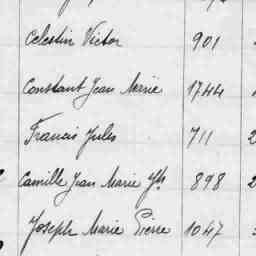 Celestin Victor 901
Constant Jean Marie 1744
Francis Jules 711
Camille Jean Marie Jh 898 2
Joseph Marie Pierre 1047